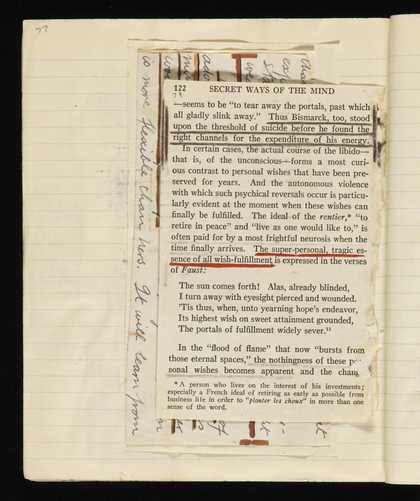 122 SECRET WAYS OF THE MIND
—seems to be "to tear away the portals, past which
all gladly slink away." Thus Bismarck, too, stood
upon the threshold of suicide before he found the
right channels for the expenditure of his energy.
In certain cases, the actual course of the libido—
that is, of the unconscious—forms a most curi-
ous contrast to personal wishes that have been pre-
served for years. And the autonomous violence
with which such psychical reversals occur is particu-
larly evident at the moment when these wishes can
finally be fulfilled. The ideal of the rentier,* "to
retire in peace" and "live as one would like to," is
often paid for by a most frightful neurosis when the
time finally arrives. The super-personal, tragic es-
sence of all wish-fulfillment is expressed in the verses
of Faust:
The sun comes forth! Alas, already blinded,
I turn away with eyesight pierced and wounded.
'Tis thus, when, unto yearning hope's endeavor,
Its highest wish on sweet attainment grounded,
The portals of fulfillment widely sever.¹¹
In the "flood of flame" that now "bursts from
those eternal spaces," the nothingness of these
sonal wishes becomes apparent and the
* A person who lives on the interest of his investments;
especially a French ideal of retiring as early as possible from
business life in order to "planter les choux" in more than one
sense of the word.
is more flexible than hers. It will learn from